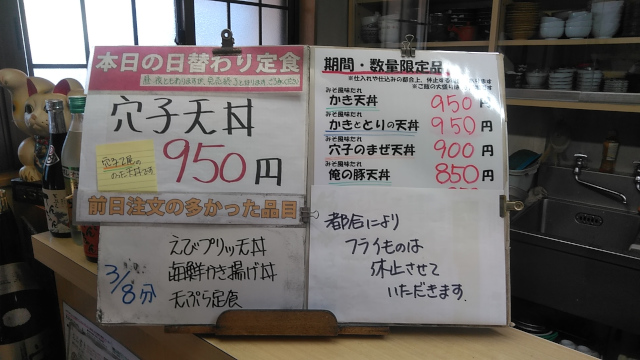 本日の日替わり定食
穴子天丼
950円
穴子2尾の
前日注文の多かった品目
3/8分
えびプリッ天丼
海鮮かき揚げ丼
天ぷら定食
期間・数量限定品
みそ風味たれ
かき天丼 950円
みそ風味たれ
かきととりの天丼 950円
みそ風味たれ
穴子のまぜ天丼 900円
みそ風味たれ
俺の豚天丼 850円
都合により
フライものは
休止させて
いただきます.